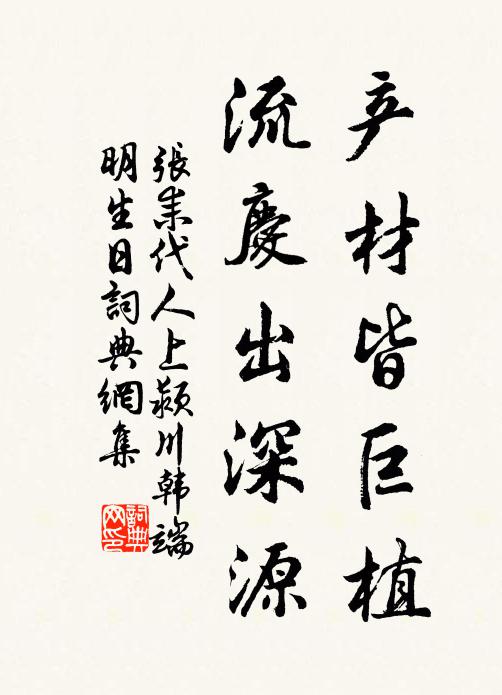 产材皆巨植
流慶出深源
張耒代人上颍川韩端
明生日詞典網集
詞典网印